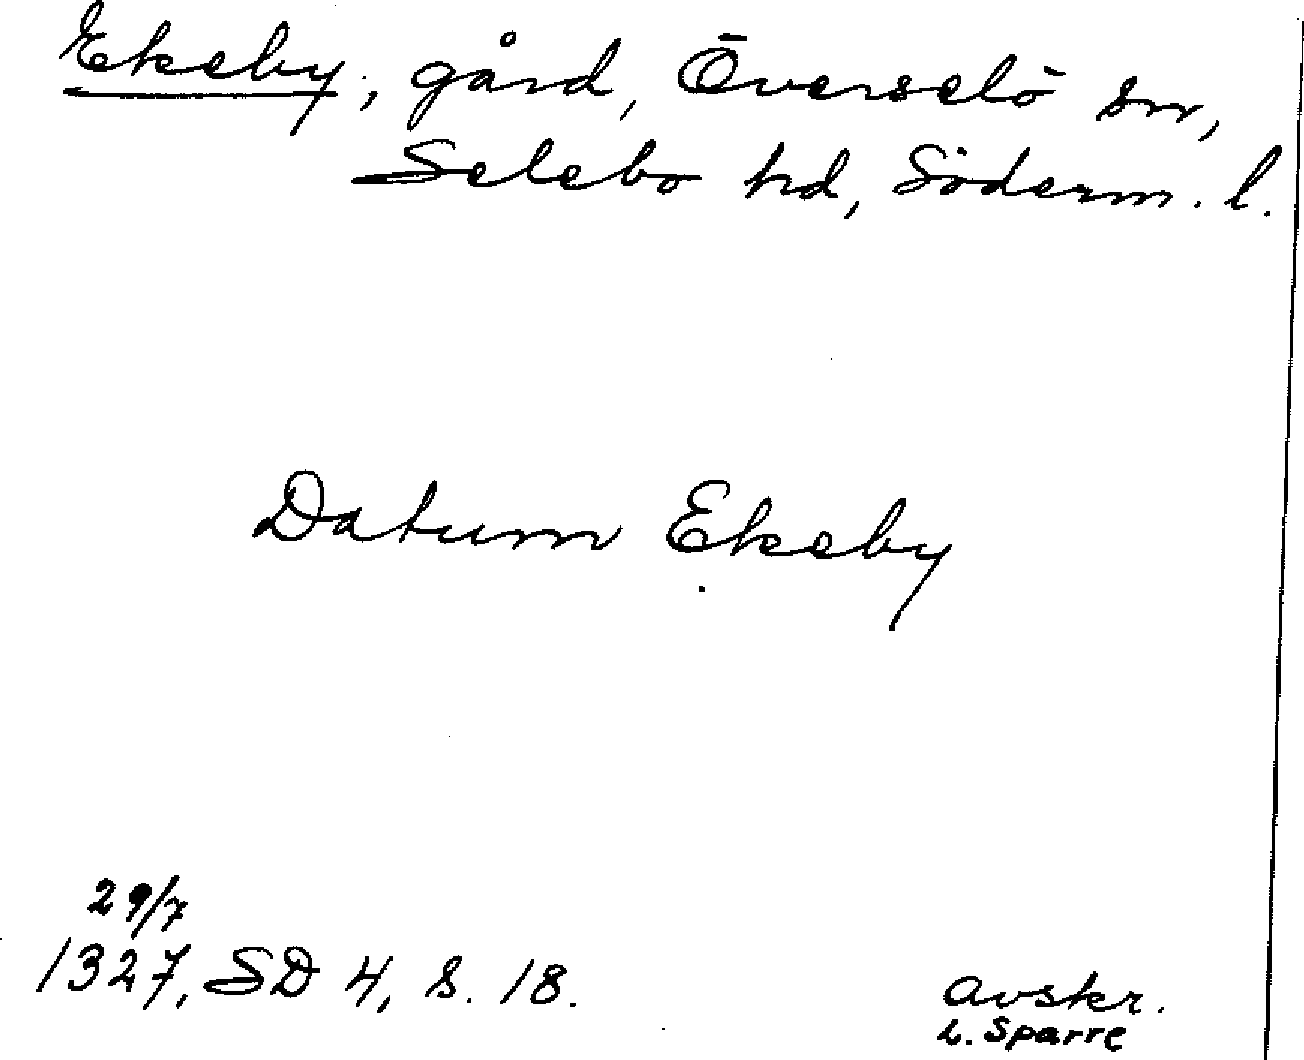 Ekeby, gård, Överselö sn,
Selebo hd, Söderm. l.
Datum Ekeby
29/7
1327, SD 4, s. 18.
avskr.
L. Sparre